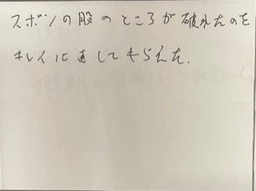 ズボンの股のところが破れたのを
キレイに直してもらえた.